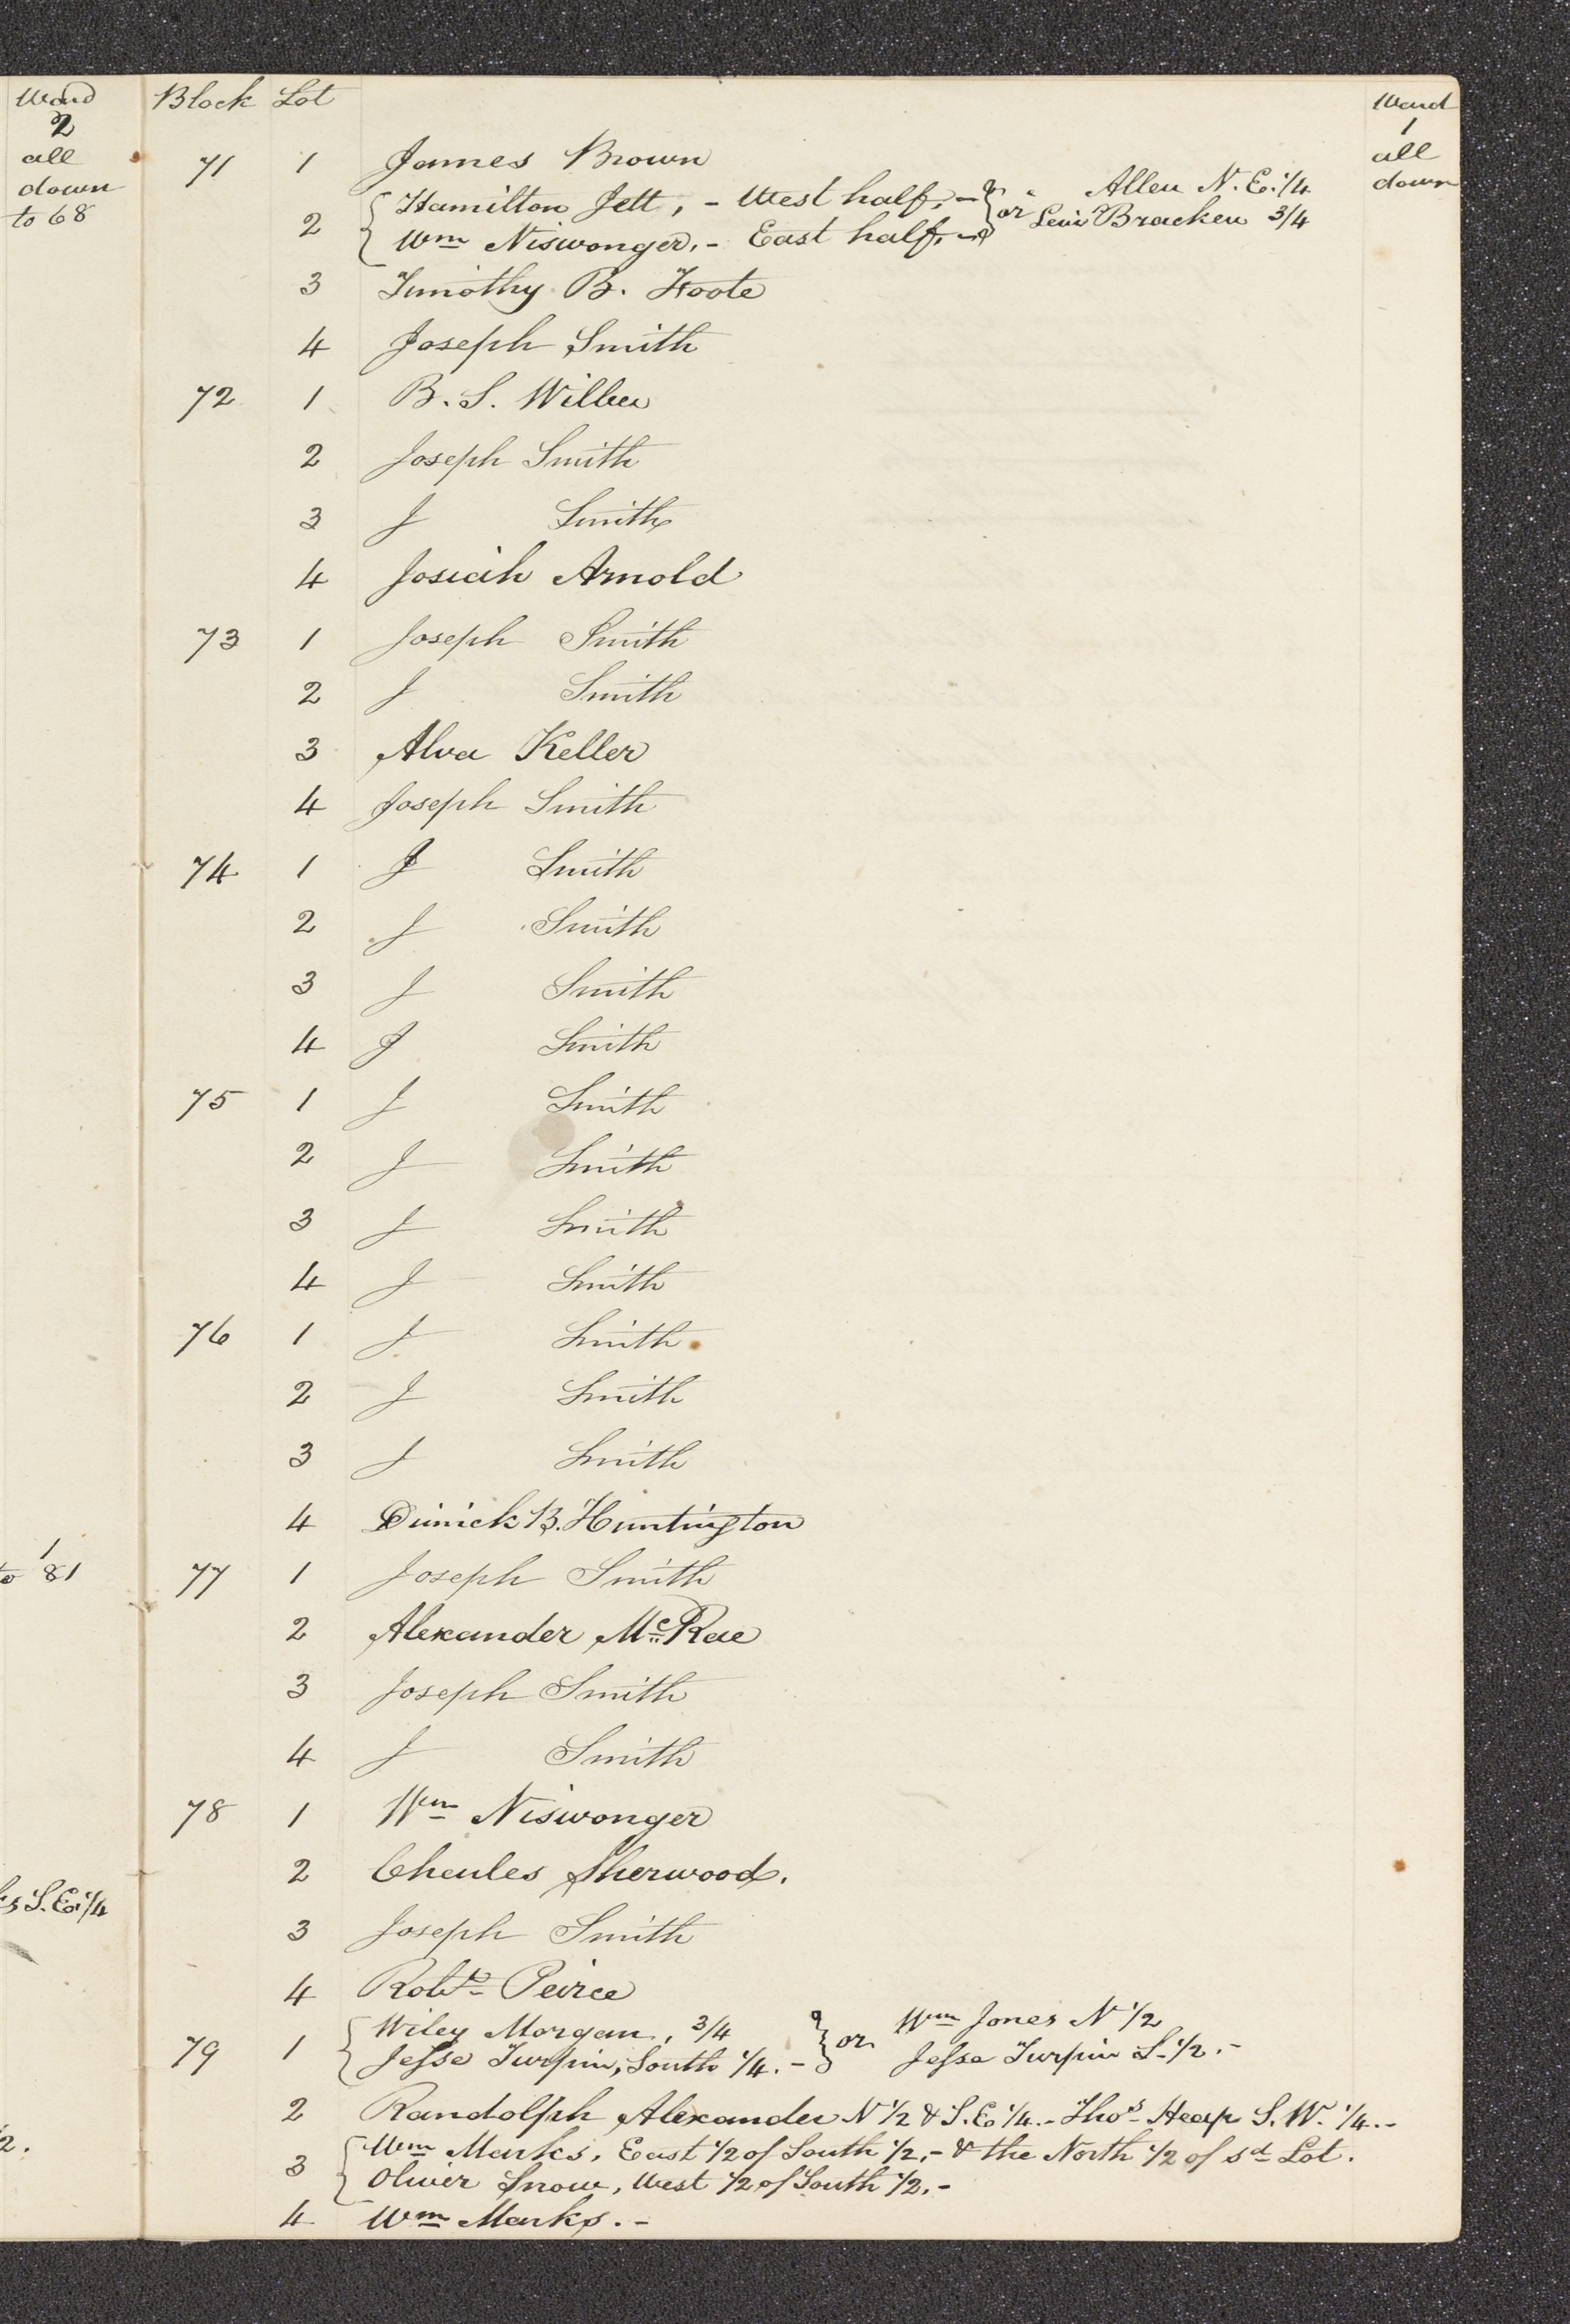 Ward
2
all
down
to 68
1
to 81
S. E. 1/4
2.
Block Lot
Ward
1
all
down
71 1 James Brown
2 { Hamilton Jett, - West half. - } or " Allen N. E. 1/4
Wm Niswonger, - East half. - Levi Bracken 3/4
3 Timothy B. Foote
4 Joseph Smith
72 1 B. S. Wilber
2 Joseph Smith
3 J Smith
4 Josiah Arnold
73 1 Joseph Smith
2 J Smith
3 Alva Keller
4 Joseph Smith
74 1 J Smith
2 J Smith
3 J Smith
4 J Smith
75 1 J Smith
2 J Smith
3 J Smith
4 J Smith
76 1 J Smith
2 J Smith
3 J Smith
4 Dimick B. Huntington
77 1 Joseph Smith
2 Alexander McRae
3 Joseph Smith
4 J Smith
78 1 Wm Niswonger
2 Charles Sherwood.
3 Joseph Smith
4 Robt Peirce
79 1 { Wiley Morgan, 3/4 } or Wm Jones N 1/2
Jesse Turpin, South 1/4. - Jesse Turpin S. 1/2. -
2 Randolph Alexander N 1/2 & S. E. 1/4. - Thos Heap S. W. 1/4. -
3 { Wm Marks, East 1/2 of South 1/2, - & the North 1/2 of sd Lot.
Oliver Snow, West 1/2 of South 1/2. -
4 Wm Marks. -